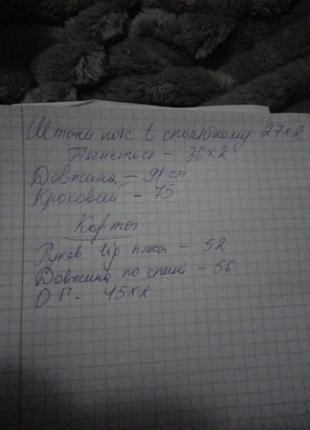 Штани пояс в спокійному 27×2
Тягнеться - 36×2
Довжина - 91 см
Кроковий - 75
Кофта
Рукав від плеча - 52
Довжина по спині - 56
О Г - 45×2